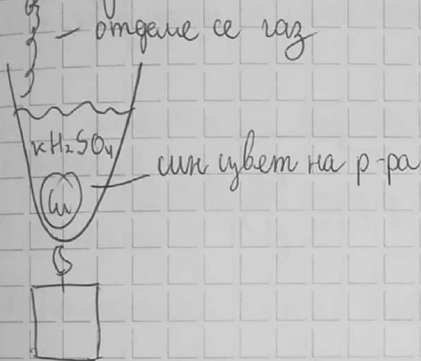 отделя се газ
кH₂SO₄
Cu
син цвет на р-ра